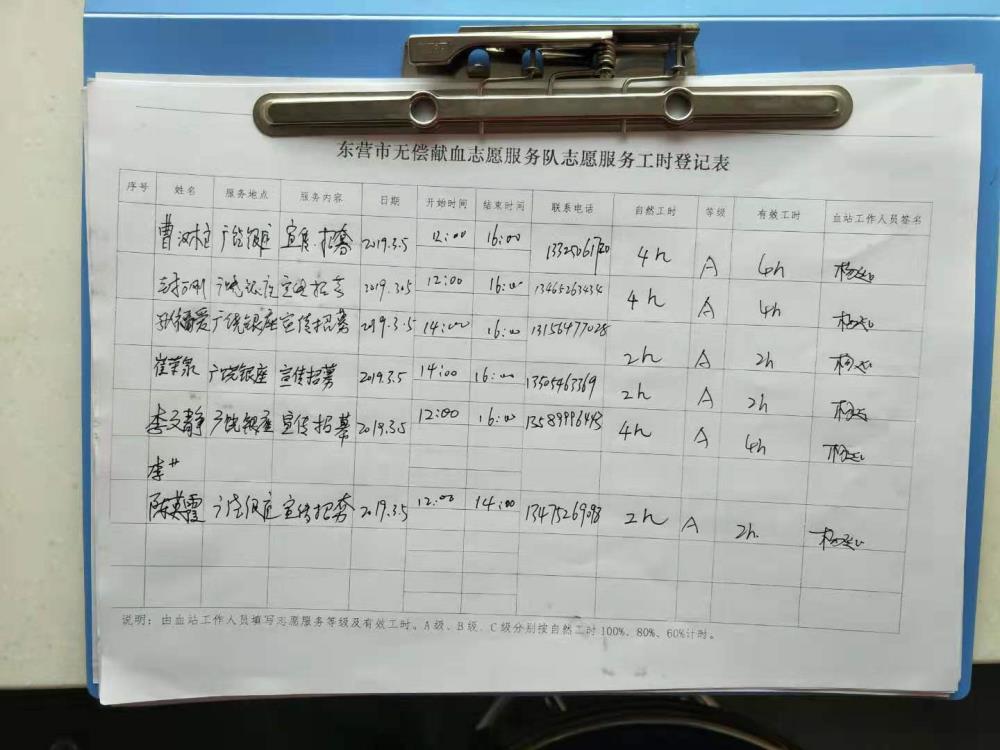 东营市无偿献血志愿服务队志愿服务工时登记表
序号 姓名 服务地点 服务内容 日期 开始时间 结束时间 联系电话 自然工时 等级 有效工时 血站工作人员签名
广饶银座 宣传招募 2019.3.5 12:00 16:00 4h A 4h
宣传招募 2019.3.5 12:00 16:00 13465263434 4h A 4h
孙福爱 广饶银座 宣传招募 2019.3.5 14:00 16:00 13156477028 2h A 2h
崔荣泉 广饶银座 宣传招募 2019.3.5 14:00 16:00 13505463369 2h A 2h
李文静 广饶银座 宣传招募 2019.3.5 12:00 16:00 13589996443 4h A 4h
李艹
陈英霞 广饶银座 宣传招募 2019.3.5 12:00 14:00 13475269098 2h A 2h.
说明：由血站工作人员填写志愿服务等级及有效工时。A级、B级、C级分别按自然工时100%、80%、60%计时。